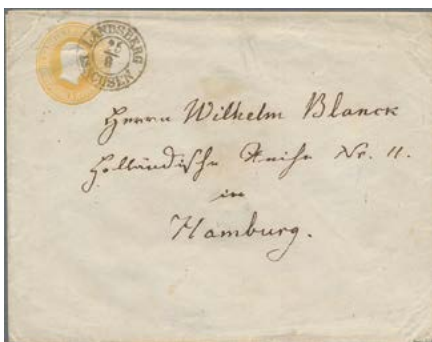 LANDSBERG
25
8
SACHSEN
Herrn Wilhelm Blanck
Holländische Reihe Nr. 11.
in
Hamburg.